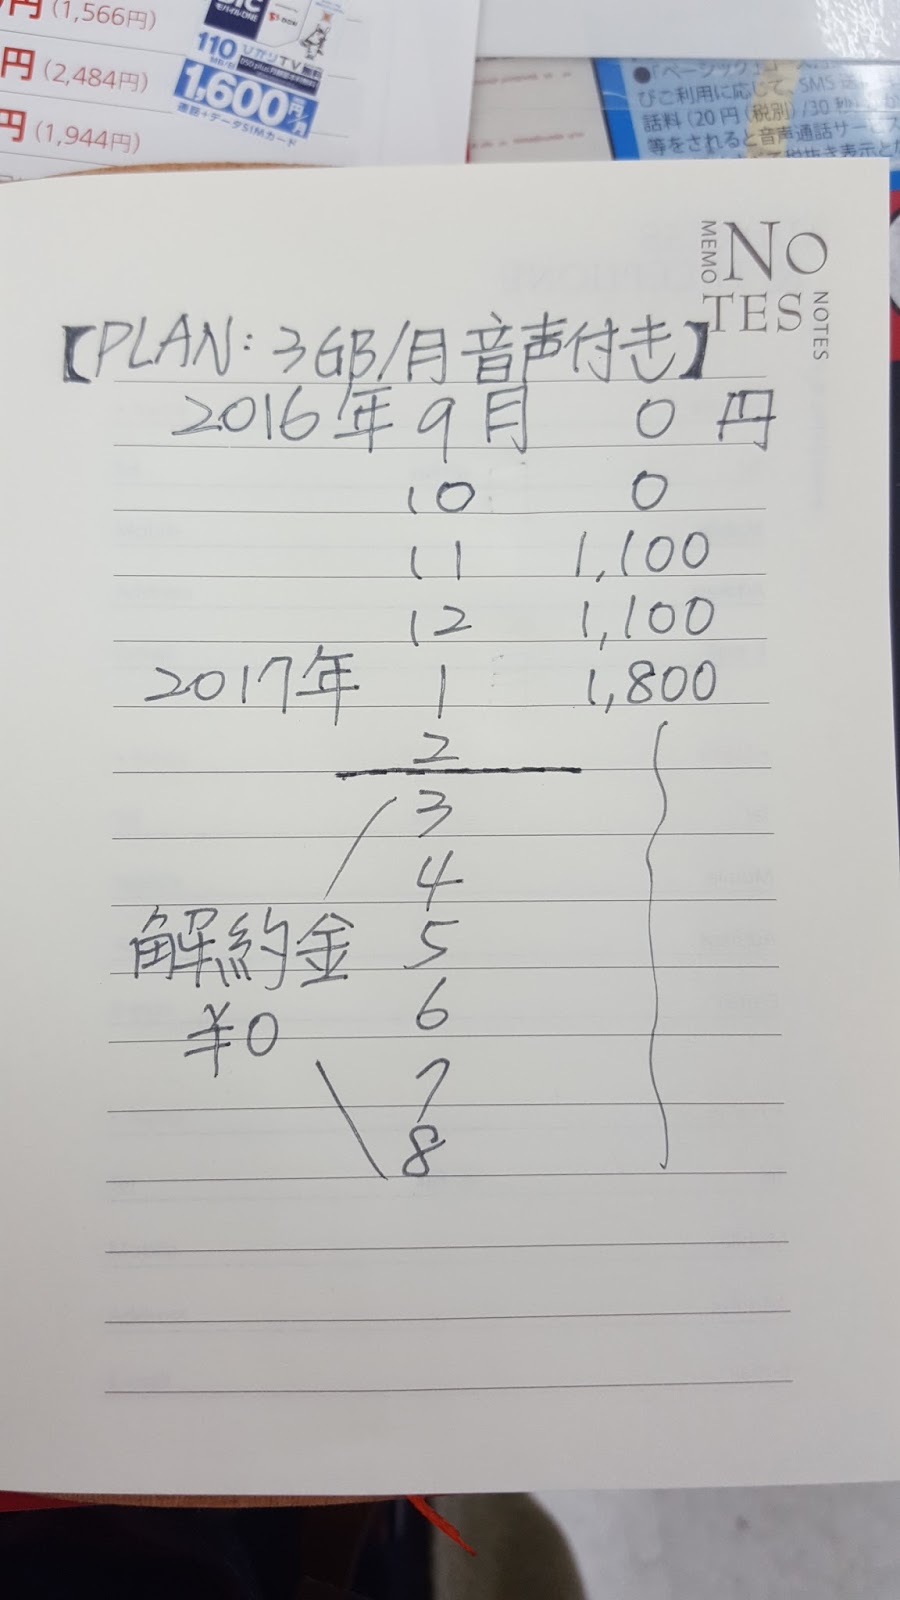 円(1,566円)
円(2,484円)
円(1,944円)
110
ひかりTV
1,600円/月
音声通話+データSIMカード
びご利用に応じて、SMS
話料(20円(税別)/30秒
等をされると音声通話サービス
MEMO
NO
TES
NOTES
【PLAN:3GB/月音声付き】
2016年9月 0円
10 0
11 1,100
12 1,100
2017年 1 1,800
2
3
4
解約金 5
¥0 6
7
8